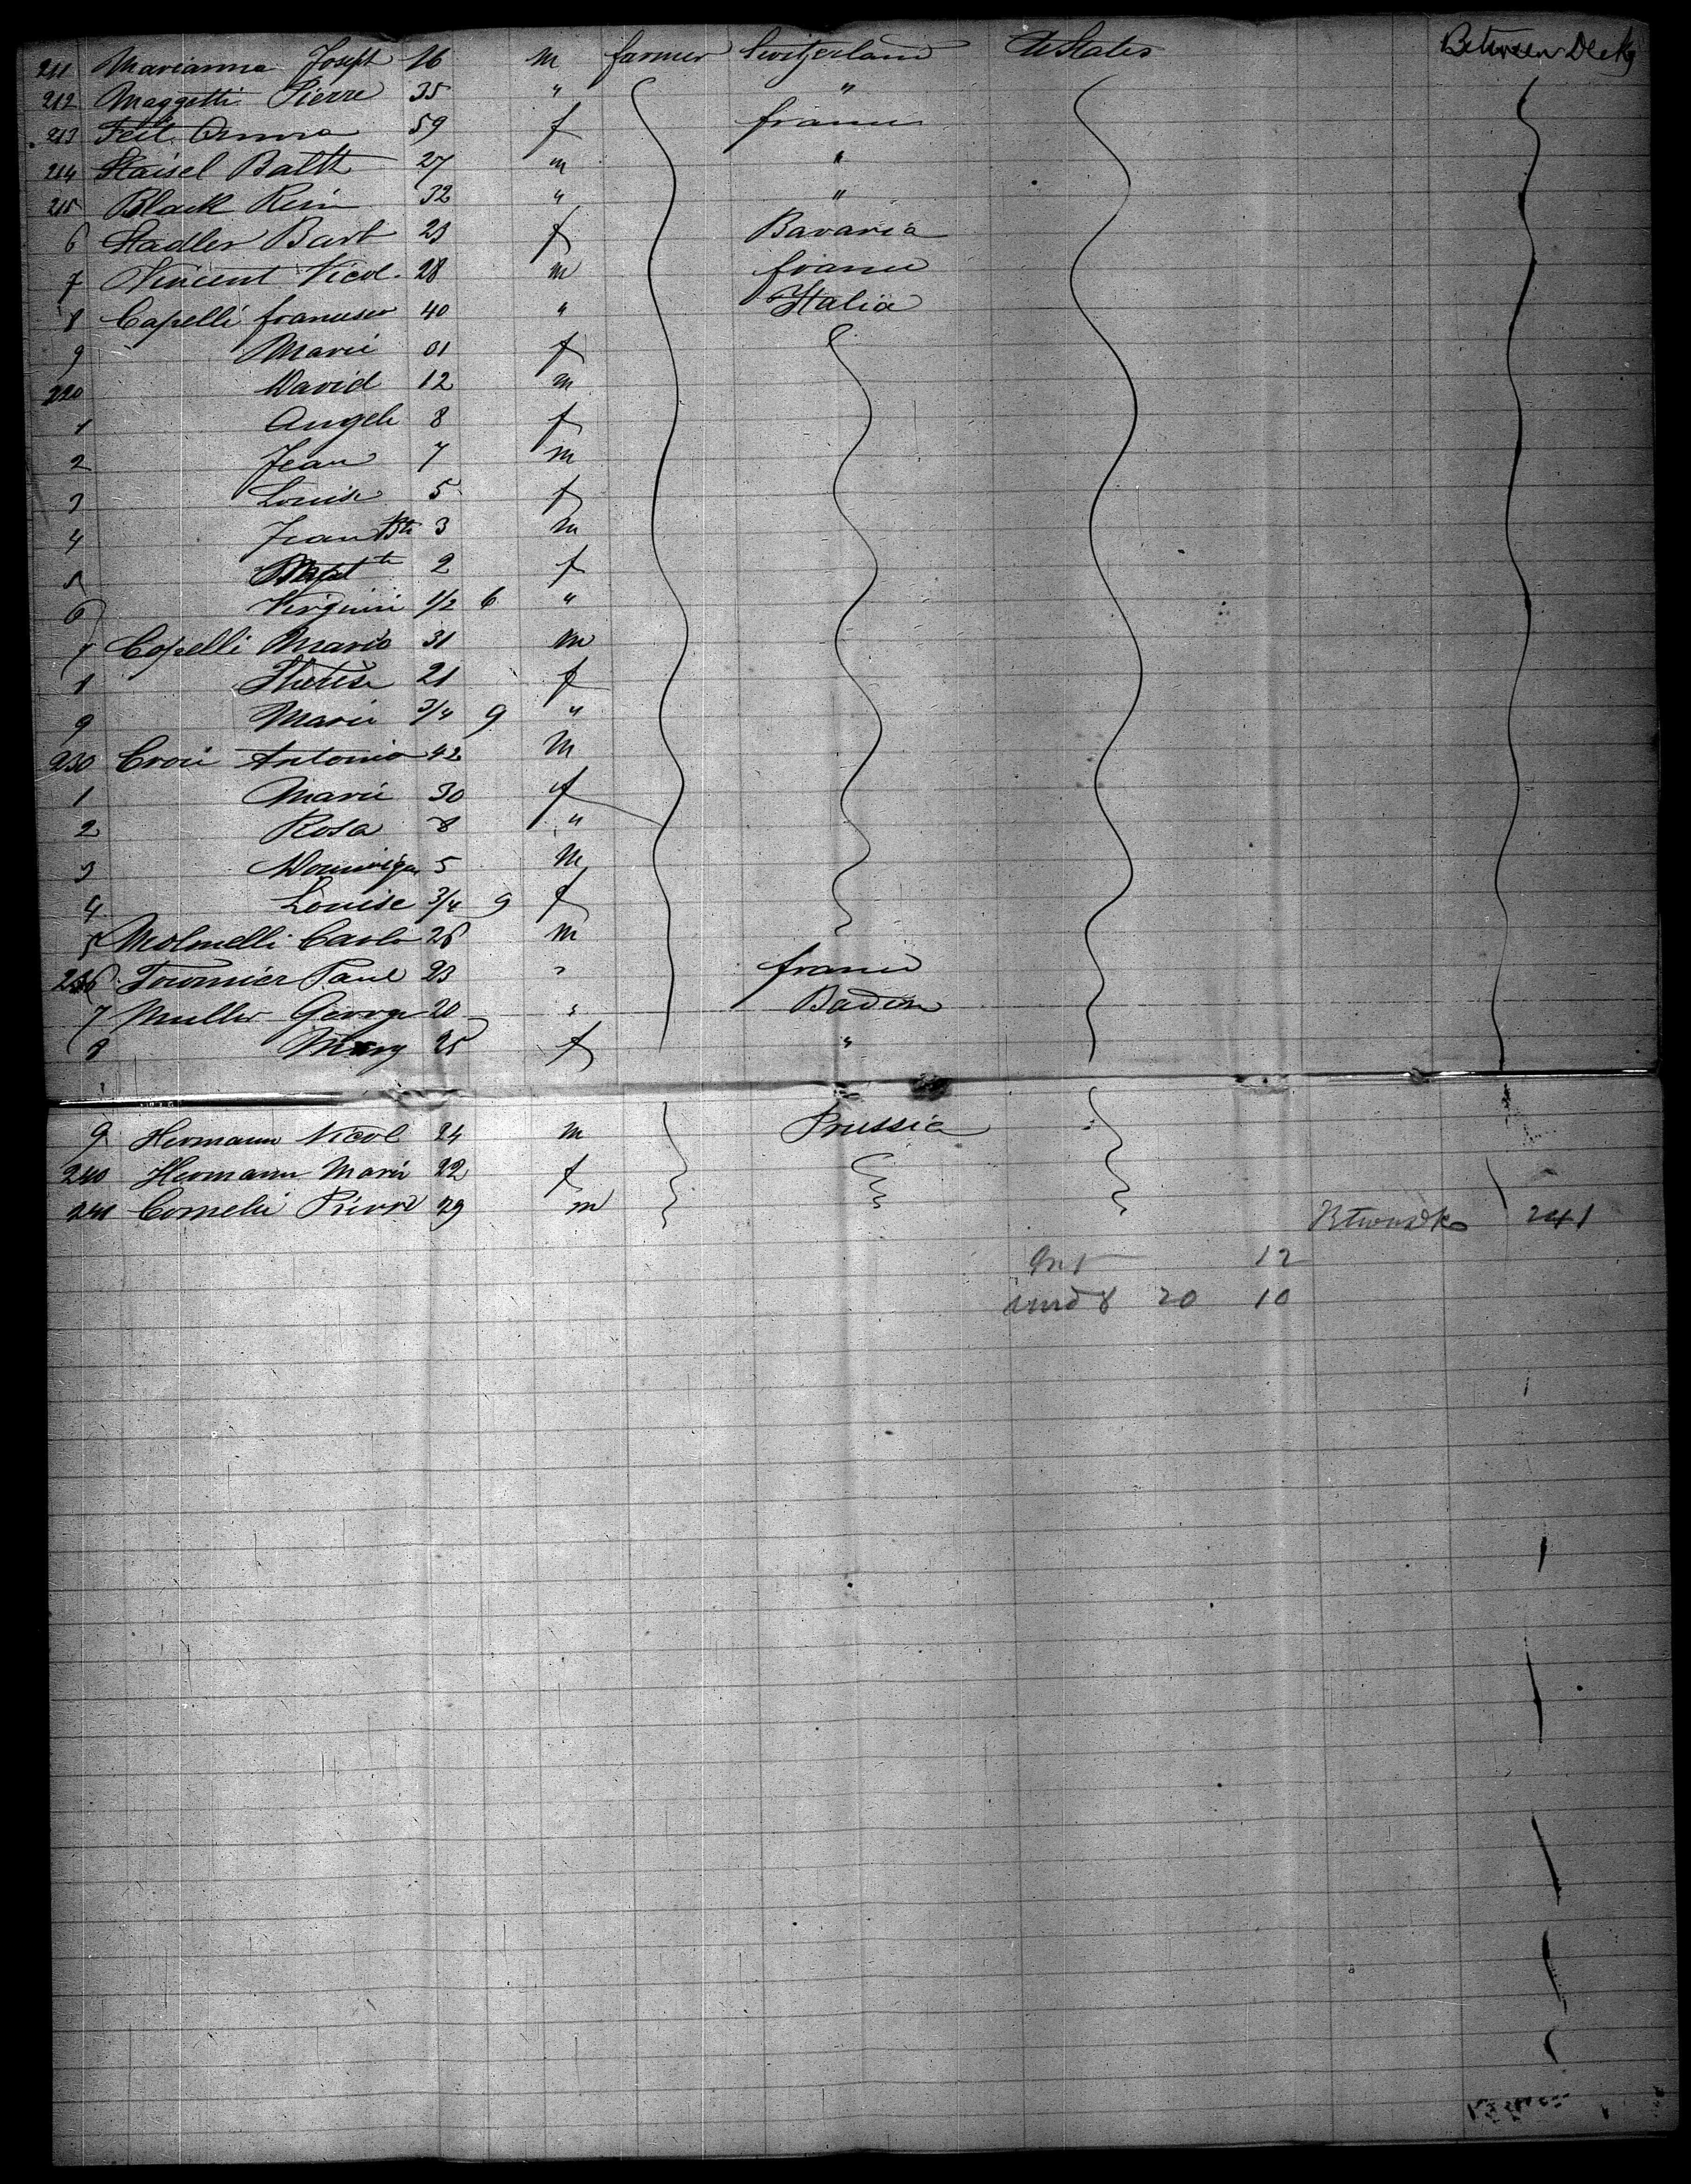 211 Marianna Joseph 16 m farmer Switzerland U States Between Decks
212 Maggetti Pierre 35 " "
213 Feit Anna 59 f france
214 Staisel Balth 27 m "
215 Black Rein 32 " "
6 Stadler Barb 23 f Bavaria
7 Vincent Nicol. 28 m france
8 Capelli francesco 40 " Italia
9 Marie 31 f
220 David 12 m
1 Angele 8 f
2 Jean 7 m
3 Louise 5 f
4 Jean Bte 3 m
5 2 f
6 Virginie 1/2 6 "
7 Copelli Mario 31 m
8 Therese 21 f
9 Marie 3/4 9 "
230 Croci Antonio 42 M
1 Marie 30 f
2 Rosa 8 "
3 Dominique 5 M
4 Louise 3/4 9 f
5 Molinelli Carlo 26 m
236 Tournier Paul 23 " france
7 Muller George 20 " Baden
8 Mary 25 f "
9 Hermann Nicol 24 m Prussia
240 Hermann Marie 22 f
241 Cornelie Pierre 29 m
Btwndk 241
Inf 12
und 8 20 10